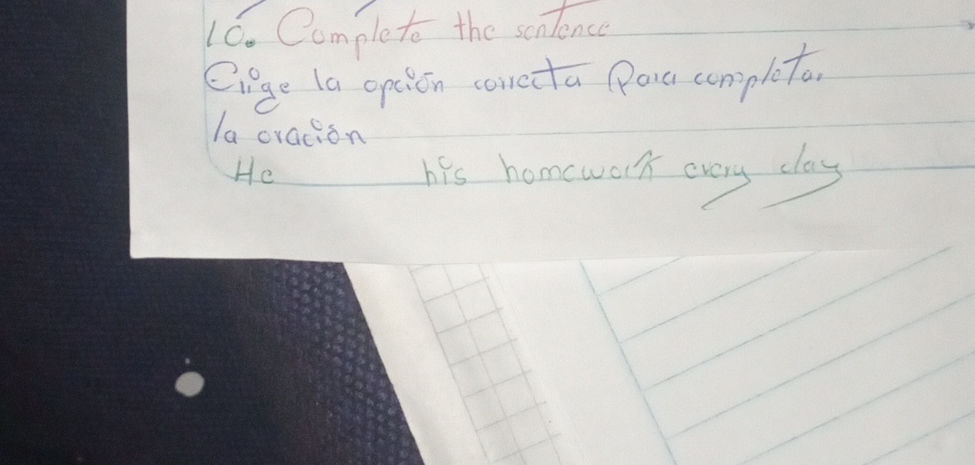 10. Complete the sentence
Elige la opción correcta Para completar
la oración
He his homework every day